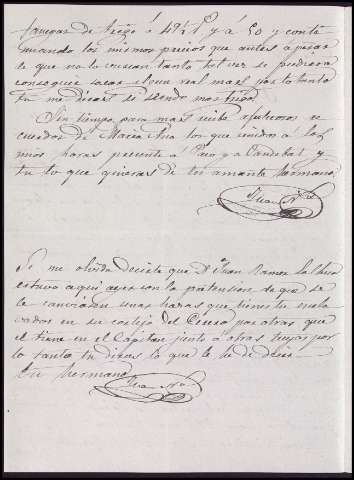 fanegas de trigo á 49 ½ r. y á 50 y conti
nuando los mismos precios que antes á pesar
de que no lo buscan tanto tal vez se pudiera
conseguir sacar algun real mas por lo tanto
tu me diras si vendo mas trigo
Sin tiempo para mas recibe afectuosos re
cuerdos de Maria Ana los que unidos a los
mios haras presente á Paco y a Candelas y
tu lo que quieras de tu amante hermano
Juan
Se me olvida decirte que D. Juan Ramon
estuvo aqui ayer con la pretension de que se
le cambiaran unas hazas que tienes tu encla
vadas en su cortijo del por otras que
el tiene en el Capitan junto á otras tuyas por
lo tanto tu diras lo que le he de decir
tu hermano
Juan